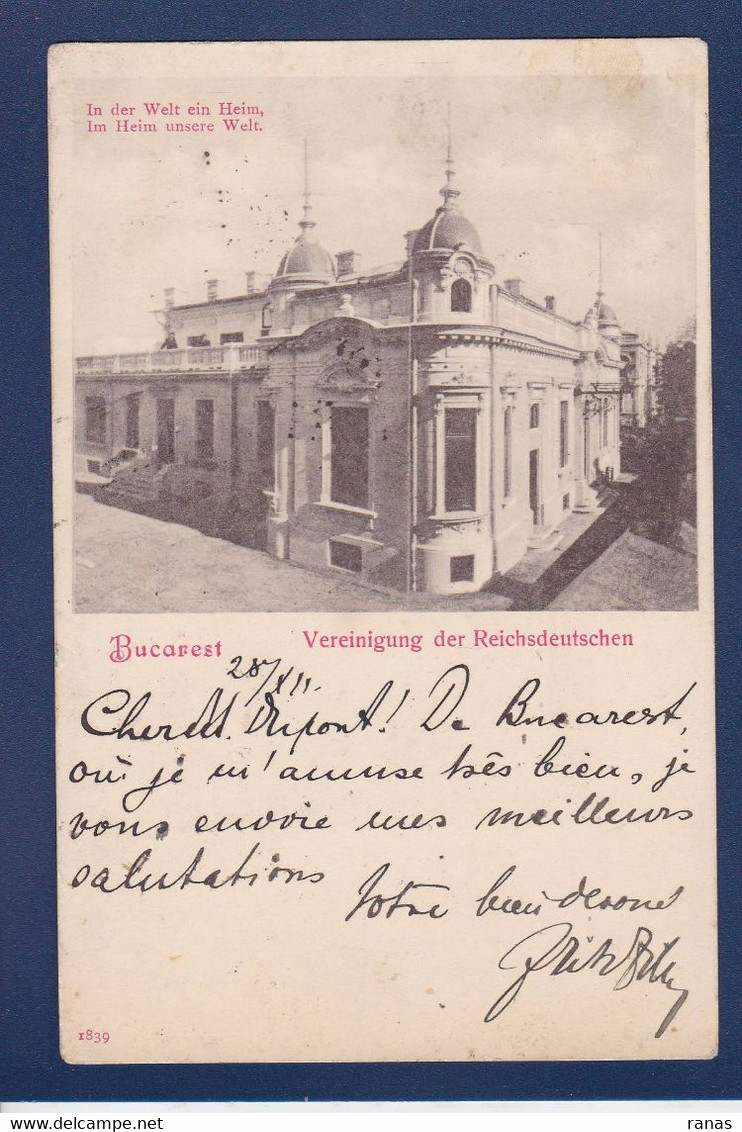 In der Welt ein Heim,
Im Heim unsere Welt.
Bucarest Vereinigung der Reichsdeutschen
28/XII.
Cher Dupont! De Bucarest,
où je m'amuse très bien, je
vous envoie mes meilleurs
salutations
Votre bien
Fritz
1839
ranas